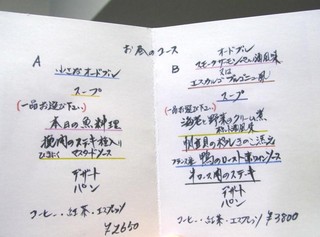 お昼のコース
A
小さなオードブル
スープ
(一品お選び下さい)
本日の魚料理
豚肉のステキ 粒入り
マスタードソース
デザート
パン
コーヒー・紅茶・エスプレッソ
¥2650
B
オードブル
スモークサーモン
又は
エスカルゴブルゴーニュ風
スープ
(一品お選び下さい)
海老と野菜のクリーム煮
帆立貝のポワレきのこ添え
フランス産 鴨のロースト赤ワインソース
牛ロース肉のステーキ
デザート
パン
コーヒー・紅茶・エスプレッソ
¥3800